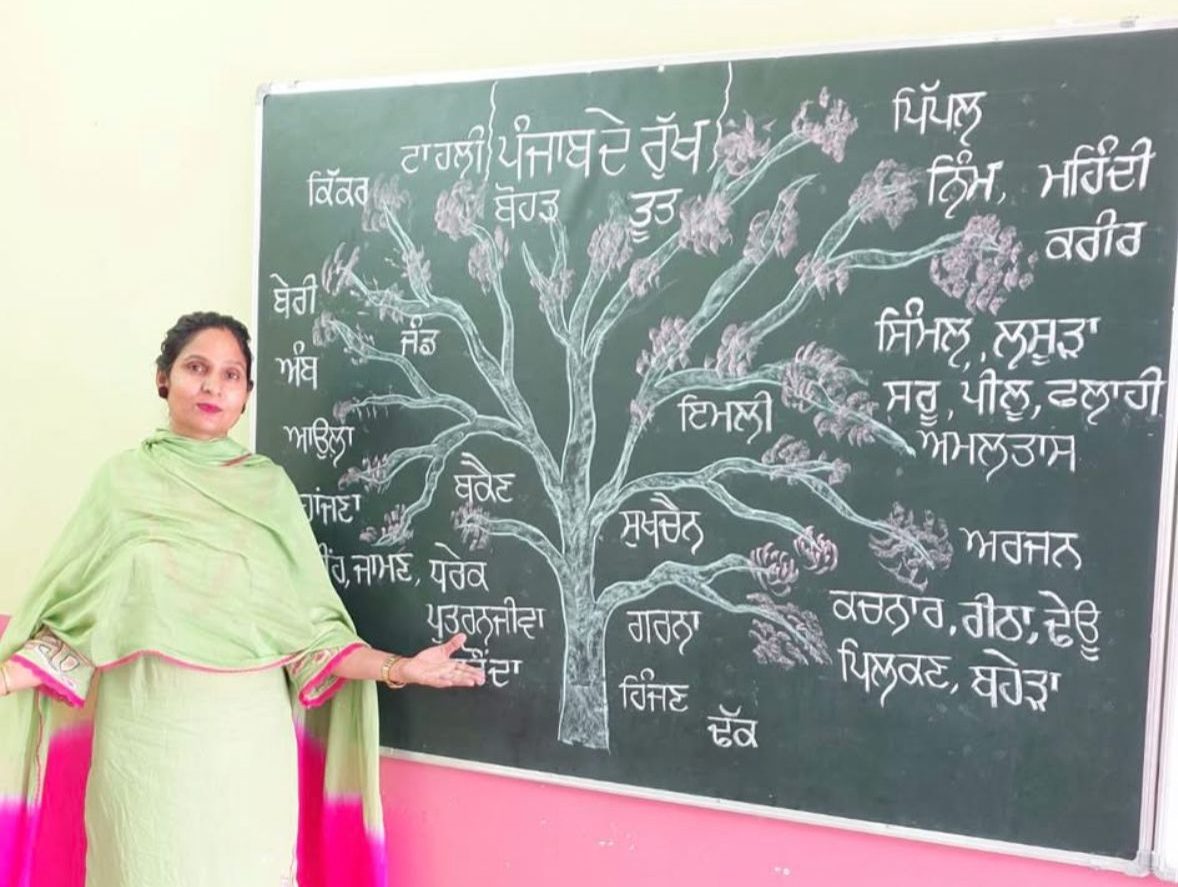 ਪੰਜਾਬ ਦੇ ਰੁੱਖ
ਟਾਹਲੀ
ਕਿੱਕਰ
ਬੋਹੜ
ਤੂਤ
ਪਿੱਪਲ਼
ਨਿੰਮ, ਮਹਿੰਦੀ
ਕਰੀਰ
ਬੇਰੀ
ਜੰਡ
ਅੰਬ
ਸਿੰਮਲ਼, ਲਸੂੜਾ
ਸਰੂ, ਪੀਲੂ, ਫਲਾਹੀ
ਅਮਲਤਾਸ
ਇਮਲੀ
ਆਉਲਾ
ਬਕੈਣ
ਸੁਖਚੈਨ
ਅਰਜਨ
ਜਾਮਣ, ਧਰੇਕ
ਪੁਤਰਨਜੀਵਾ
ਗਰਨਾ
ਕਚਨਾਰ, ਰੀਠਾ, ਢੇਊ
ਪਿਲਕਣ, ਬਹੇੜਾ
ਹਿੰਜਣ
ਢੱਕ